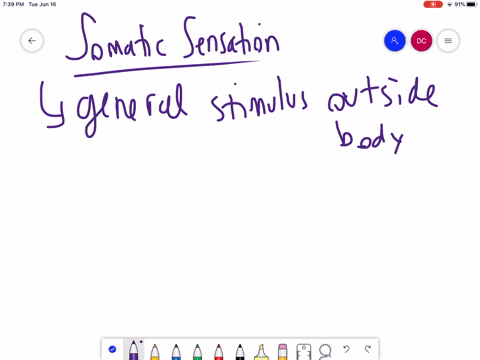 7:39 PM Tue Jun 16
91%
DC
Somatic Sensation
↳ general stimulus outside
body